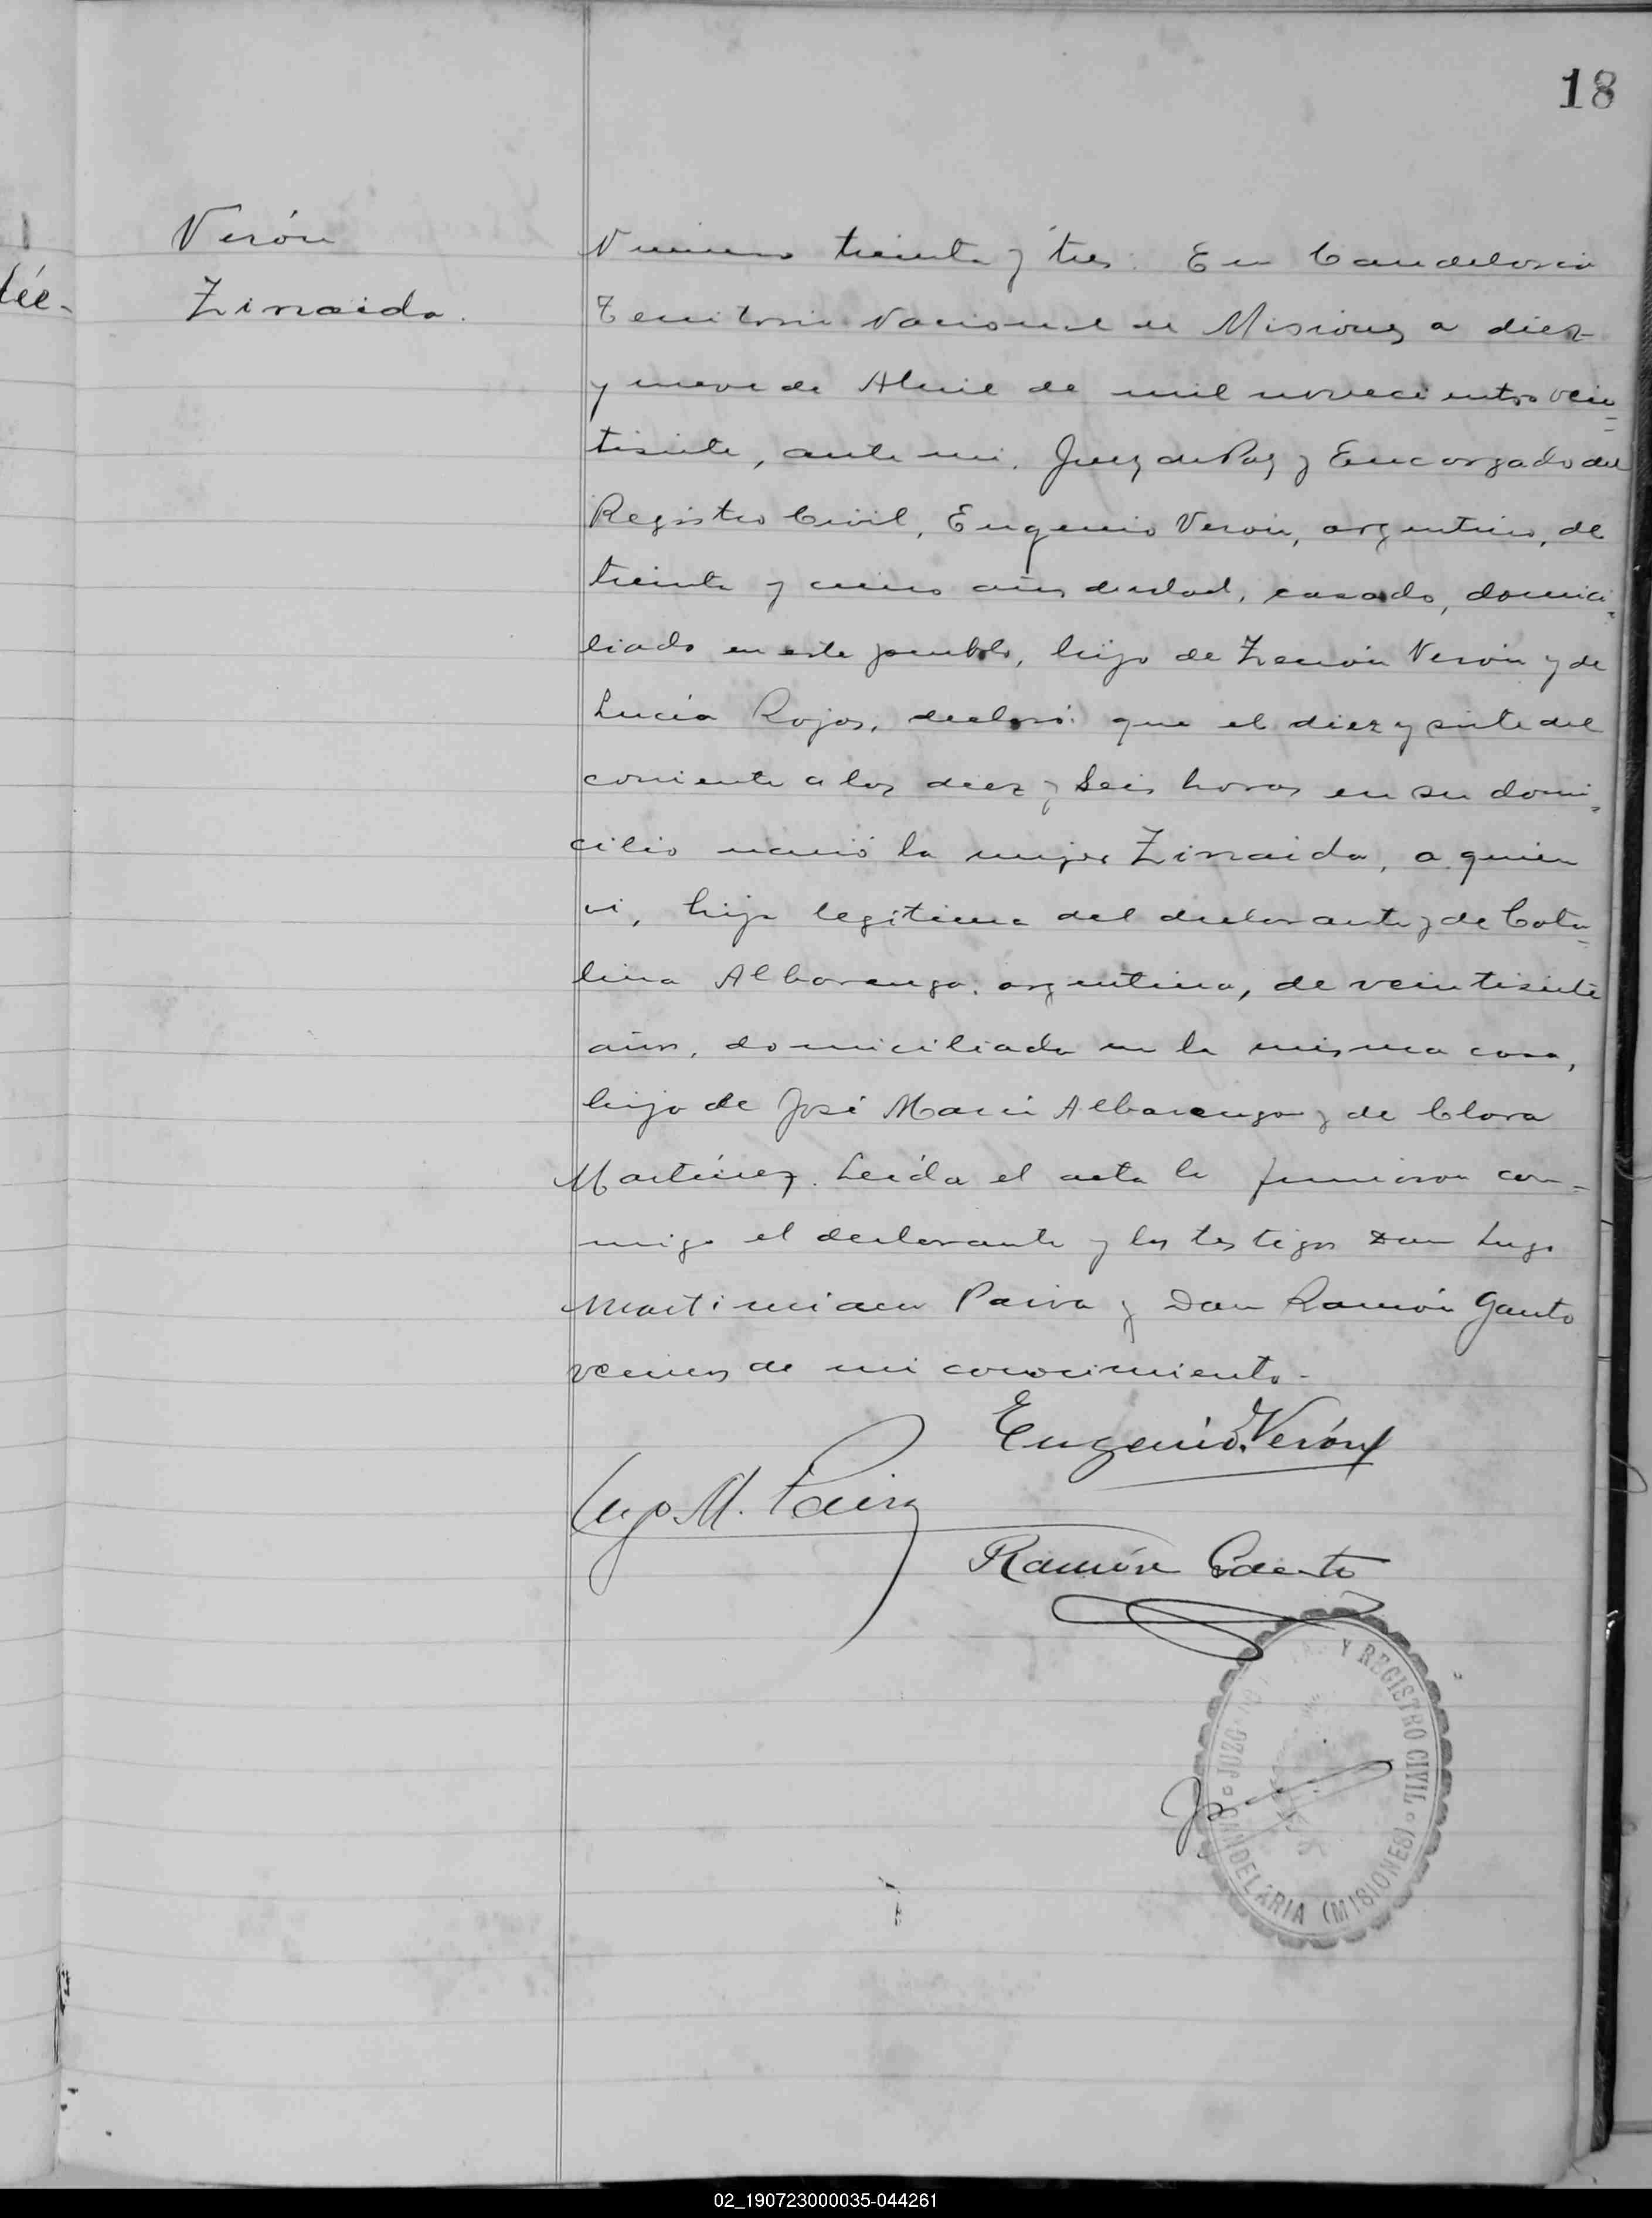 18
Verón
Zinaida.
lée-
Numero treinta y tres. En Candelaria
Territorio Nacional de Misiones a diez
y nueve de Abril de mil novecientos vein
tisiete, ante mi, Juez de Paz y Encargado del
Registro Civil, Eugenio Verón, argentino, de
treinta y cinco años de edad, casado, domici-
liado en este pueblo, hijo de Zenón Verón y de
Lucía Rojas, declaró: que el diez y siete del
corriente a las diez y seis horas en su domi-
cilio nació la mujer Zinaida, a quien
vi, hija legítima del declarante y de Cata-
lina Albarenga, argentina, de veintisiete
años, domiciliada en la misma casa,
hija de José María Albarenga y de Clara
Martínez. Leída el acta la firmaron con-
migo el declarante y los testigos Don Lugo
Martiniano Paiva y Don Ramón Gauto
vecinos de mi conocimiento.-
Eugenio Verón
Lugo M. Paiva
Ramón Gauto
Y REGISTRO CIVIL
CANDELARIA (MISIONES)
02_190723000035-044261